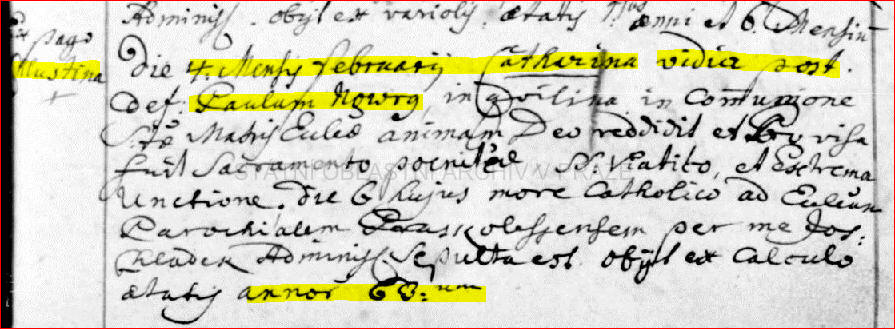 Adminiss. obyt ex variolis ætatis 1ius anni et 6. Mensiu
pago
die 4. Mensis februarij Catharina vidua post.
def. Paulum Nowey in in Comunione
Stæ Matris Eccleæ animam Deo reddidit et provisa
fuit Sacramento poenitææ S. Viatico, et Extrema
Unctione. die 6 hujus more Catholico ad Eccliam
Parochialem per me Jos:
Kladek Adminiss. Sepulta est. obyt ex Calculo
ætatis annor 60.um
STÁTNÍ OBLASTNÍ ARCHIV V PRAZE